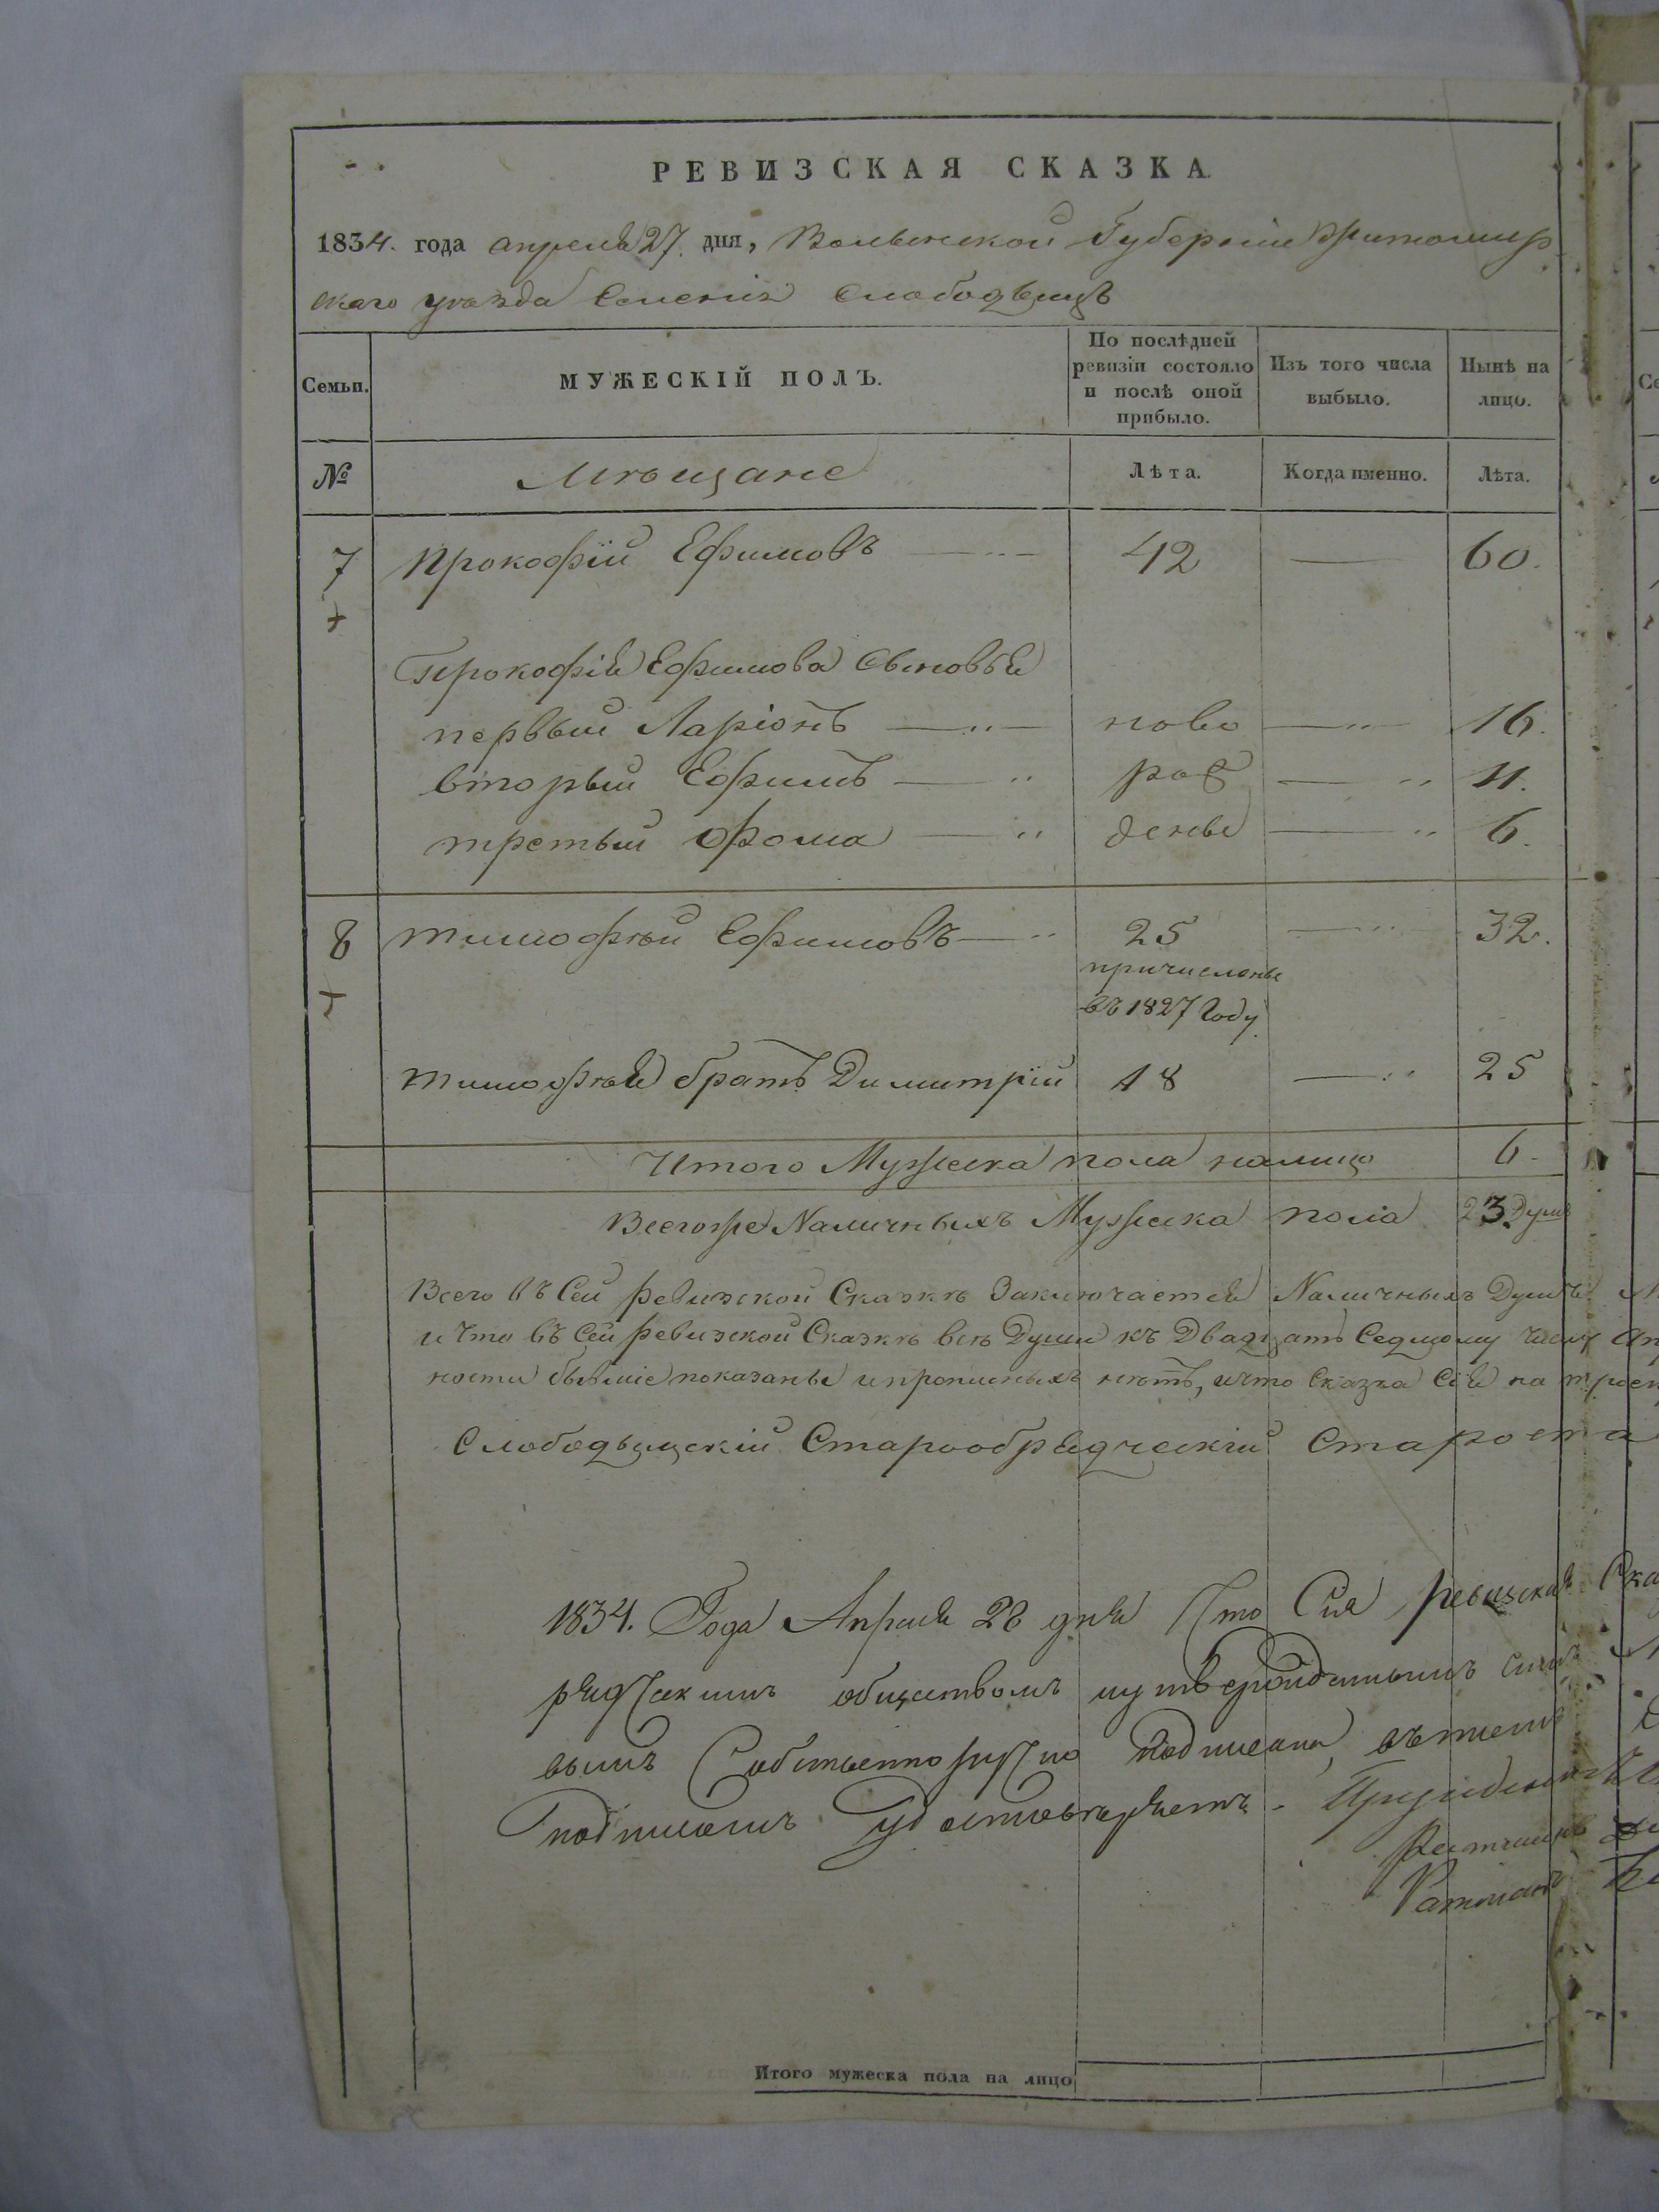 РЕВИЗСКАЯ СКАЗКА.
1834. года апреля 27. дня, Волынской Губернiи Житомир
скаго уѣзда Селенiя Слободыщъ
Семьи.
МУЖЕСКІЙ ПОЛЪ.
По послѣдней ревизіи состояло и послѣ оной прибыло.
Изъ того числа выбыло.
Нынѣ на лицо.
№
Мѣщане
Лѣта.
Когда именно.
Лѣта.
7 Прокофiй Ефимовъ 42 — 60.
Прокофiя Ефимова сыновья
первый Ларiонъ — " — ново — " 16.
вторый Ефимъ — " рож — " 11.
третьи Фома — " дены — " 6.
8 Тимофѣй Ефимовъ — " 25 — " 32.
причислены
въ 1827 году
Тимофѣя братъ Димитрiй 18 — " 25
Итого Мужеска пола налицо 6.
Всегоже Наличныхъ Мужеска пола 23. Душъ
Всего въ Сей ревизской Сказкѣ Заключается Наличныхъ Душъ
и что въ сей ревизской Сказкѣ всѣ Души къ Двадцать Седмому числу Ап
ности бывшiе показаны и прописныхъ нѣтъ, и что Сказка Сiя на трое
Слободыщскiй Старообрядческiй Староста
1834. Года Апреля 28 дня Что Сия ревизская Ска
рядческимъ обществомъ и утвержденнымъ
вымъ Собственноручно подписана, въ темъ
подписомъ Удостоверяетъ.
Ратманъ
Ратманъ
Итого мужеска пола на лицо